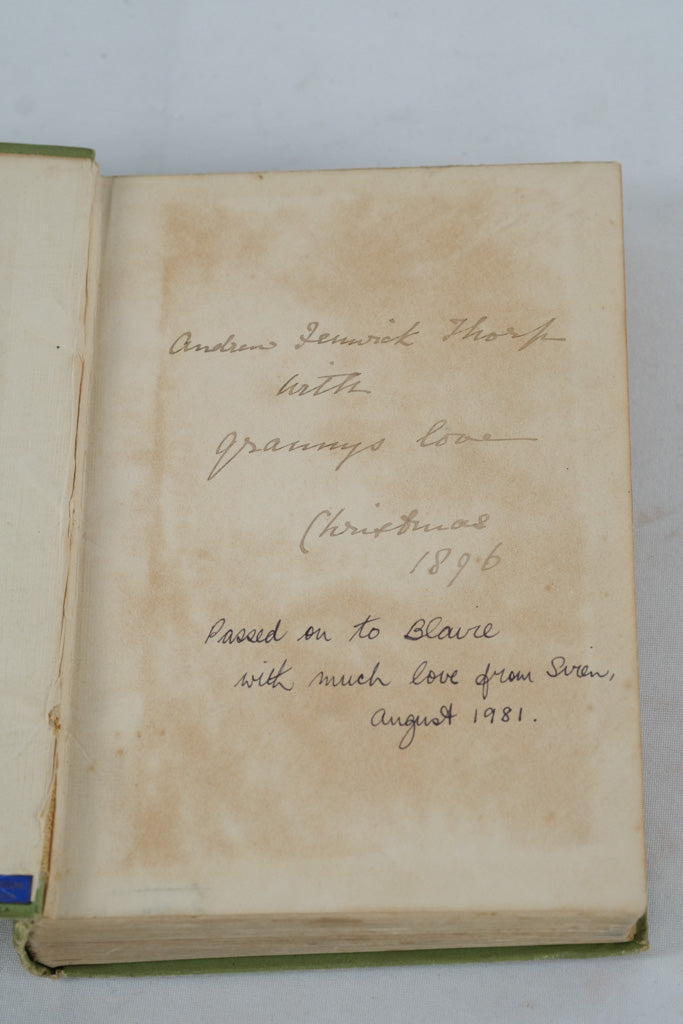 Andrew Fenwick Thorp
with
grannys love
Christmas
1896
Passed on to Blaire
with much love from Siren,
August 1981.